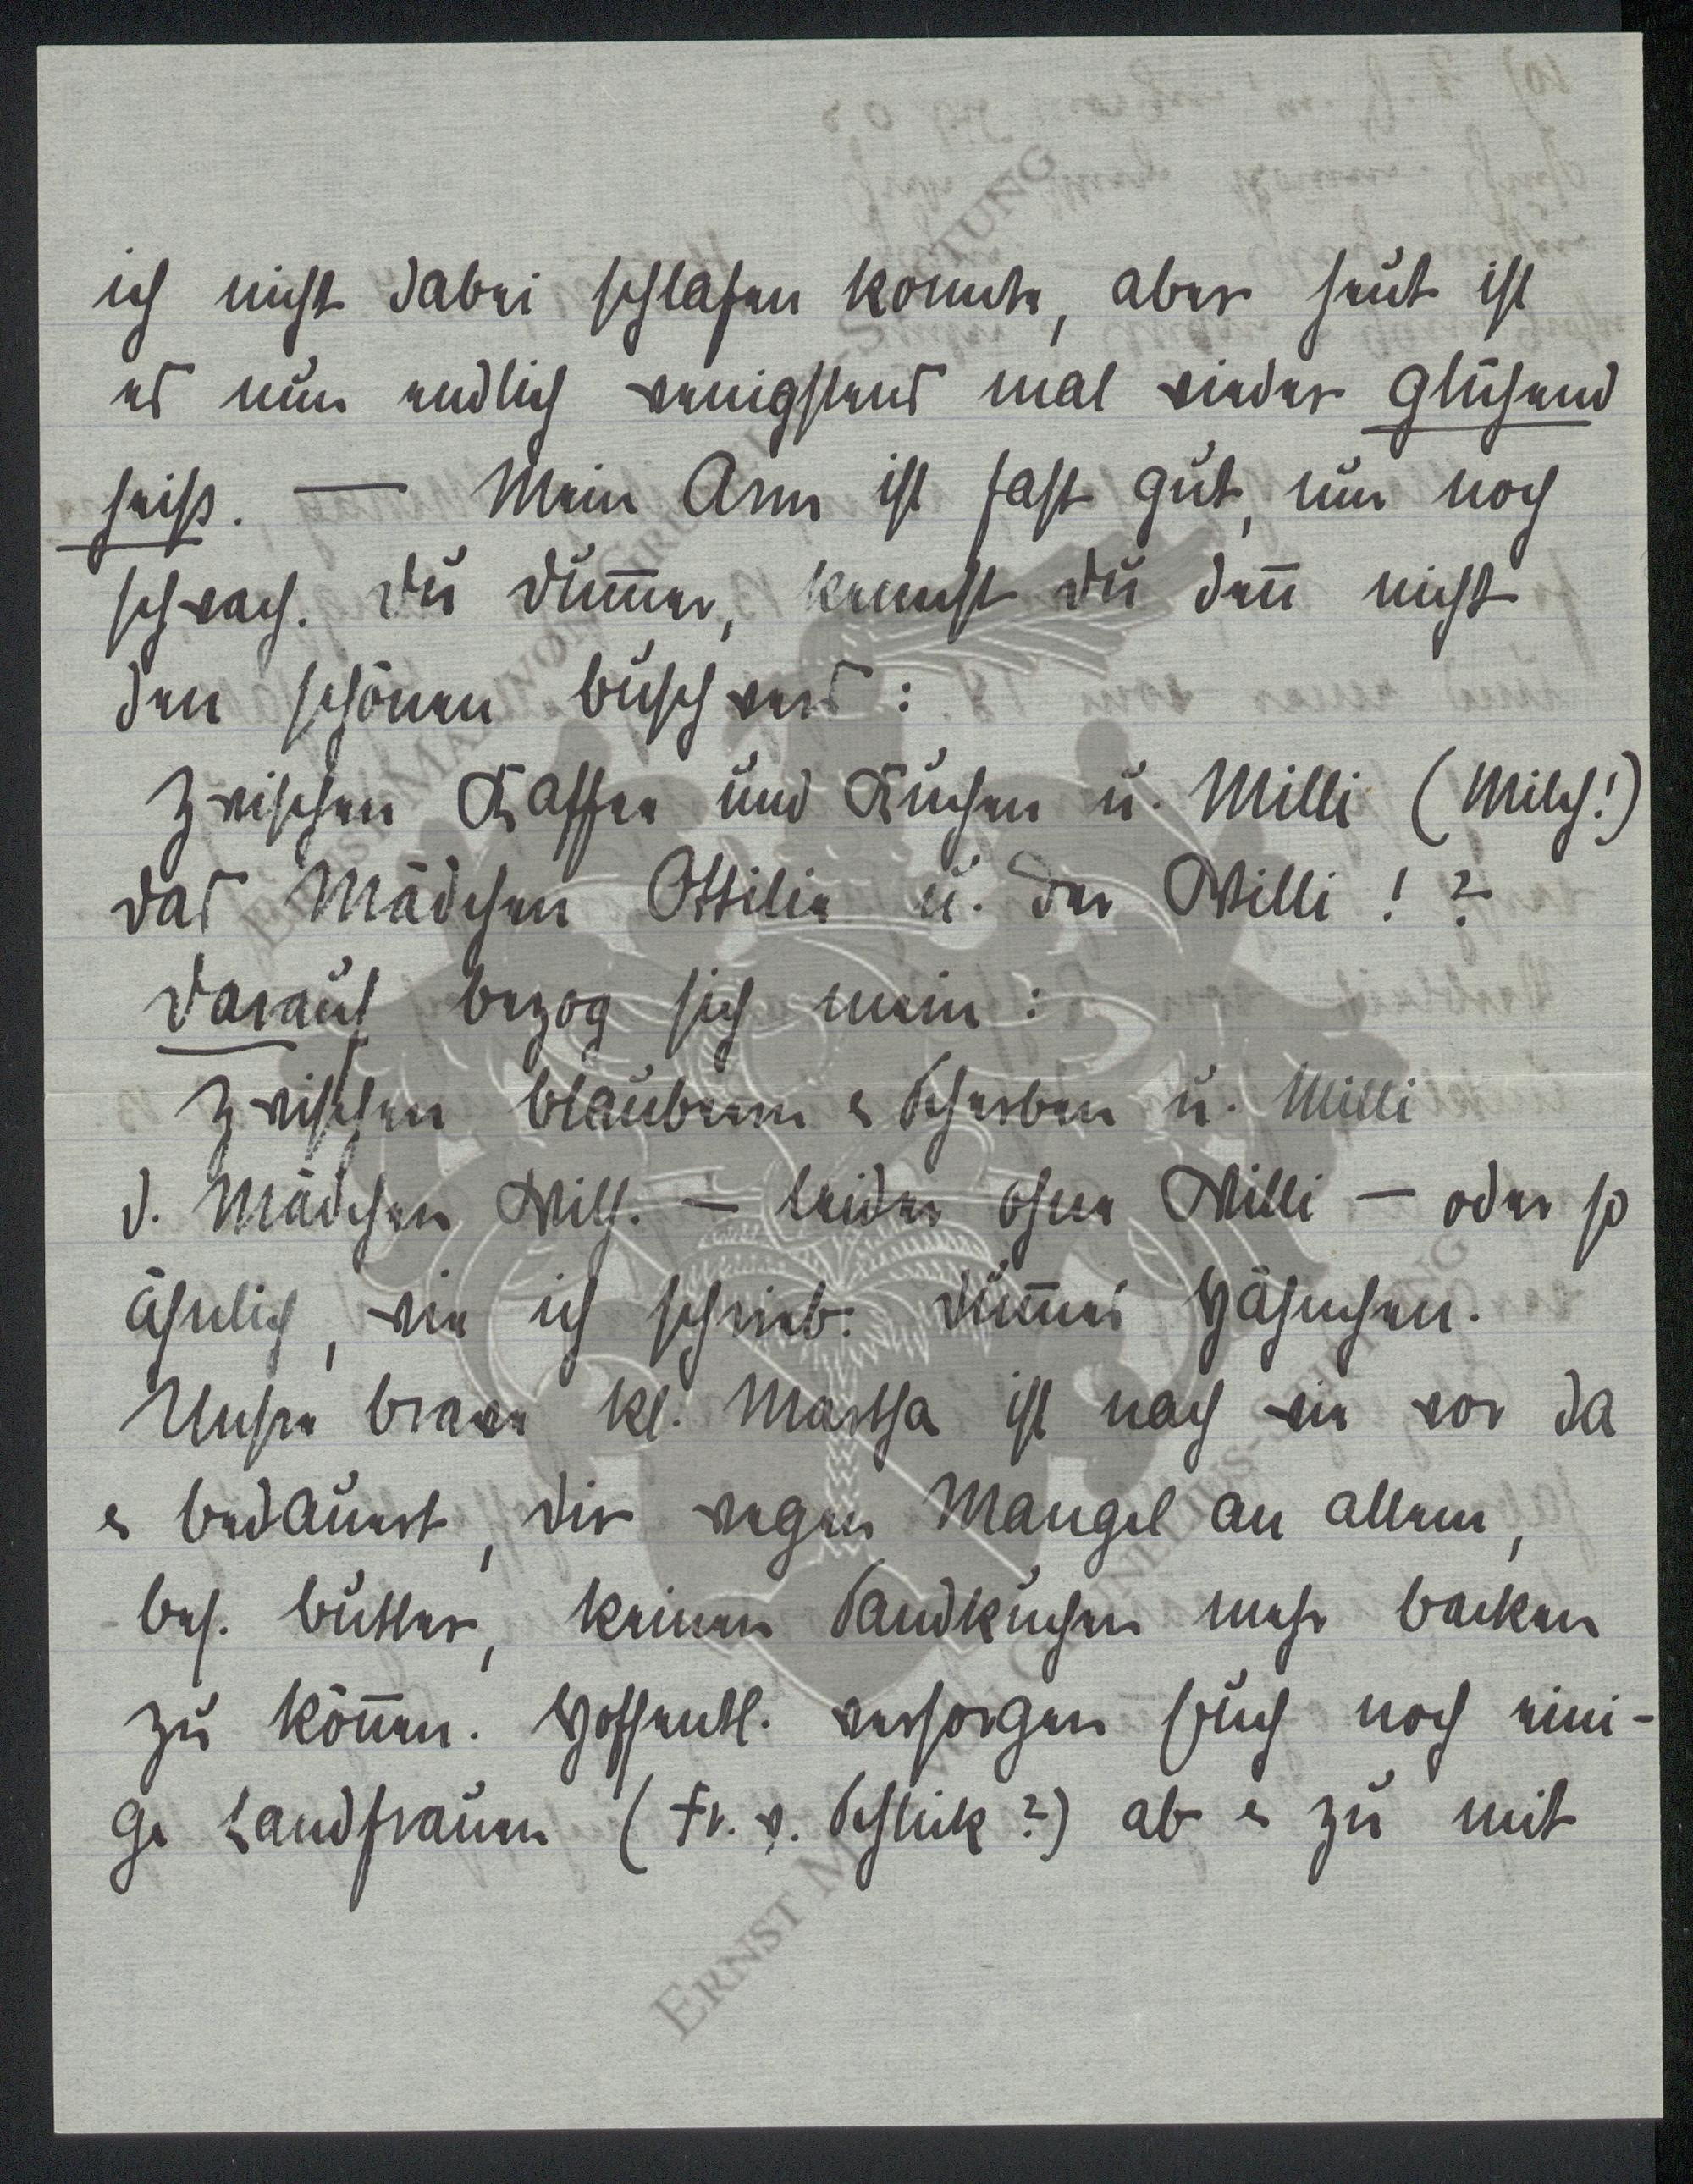 ich nicht dabei schlafen konnte, aber heut ist
es nun endlich wenigstens mal wieder glühend
heiss. — Mein Arm ist fast gut, nur noch
schwach. Du dum̅er, kennst Du den̅ nicht
den schönen Buschvers:
Zwischen Kaffee und Kuchen u. Milli (Milch!)
das Mädchen Ottilie u. der Willi!?
Darauf bezog sich mein:
Zwischen Blaubeern & Scherben u. Milli
d. Mädchen Wilh. — leider ohne Willi — oder so
ähnlich, wie ich schrieb. Dum̅es Hähnchen.
Unsre brave kl. Martha ist nach wie vor da
& bedauert, dir wegen Mangel an allem,
bes. Butter, keinen Sandkuchen mehr backen
zu kön̅en. Hoffentl. versorgen Euch noch eini-
ge Landfrauen (Fr. v. Schlick?) ab & zu mit
ERNST MAGNUS-STIFTUNG